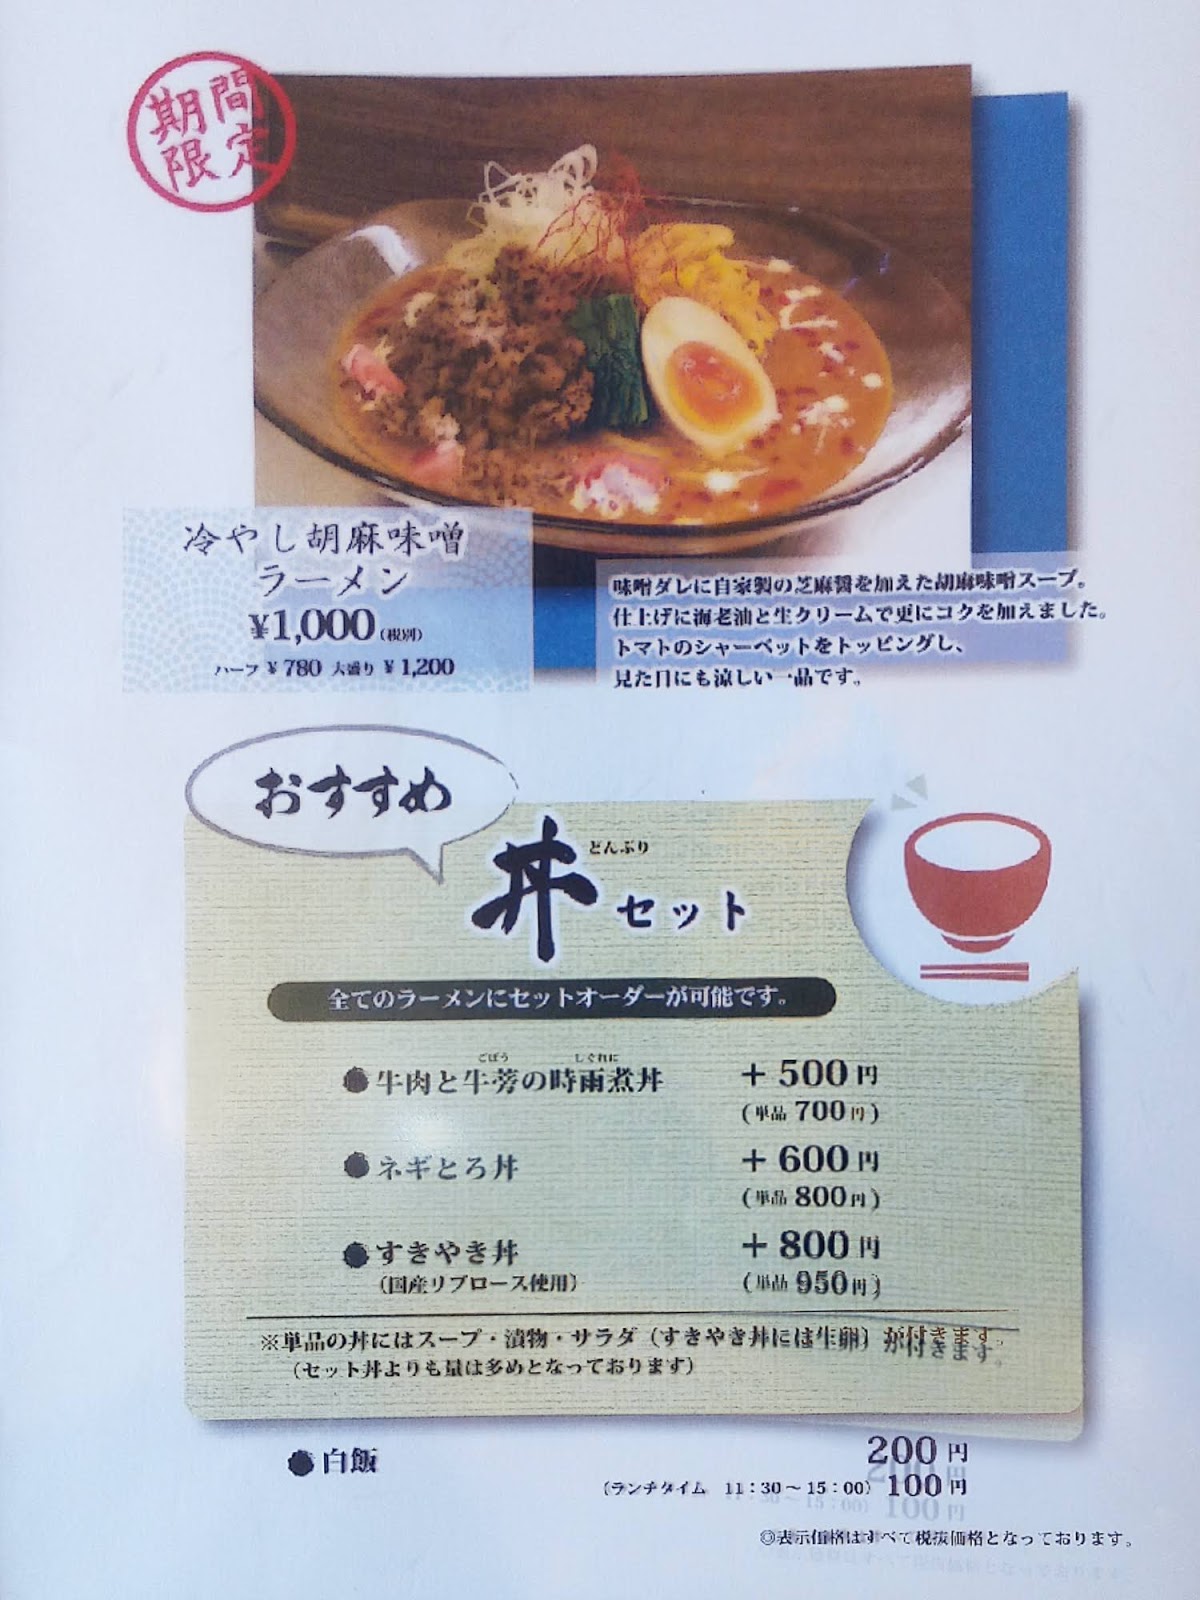 期間
限定
冷やし胡麻味噌
ラーメン
¥1,000(税別)
ハーフ ¥780 大盛り ¥1,200
味噌ダレに自家製の芝麻醤を加えた胡麻味噌スープ。
仕上げに海老油と生クリームで更にコクを加えました。
トマトのシャーベットをトッピングし、
見た目にも涼しい一品です。
おすすめ
どんぶり
丼セット
全てのラーメンにセットオーダーが可能です。
ごぼう しぐれに
●牛肉と牛蒡の時雨煮丼 +500円
(単品 700円)
●ネギとろ丼 +600円
(単品 800円)
●すきやき丼 +800円
(国産リブロース使用) (単品 950円)
※単品の丼にはスープ・漬物・サラダ(すきやき丼には生卵)が付きます。
(セット丼よりも量は多めとなっております)
●白飯 200円
(ランチタイム 11:30〜15:00) 100円
◎表示価格はすべて税抜価格となっております。